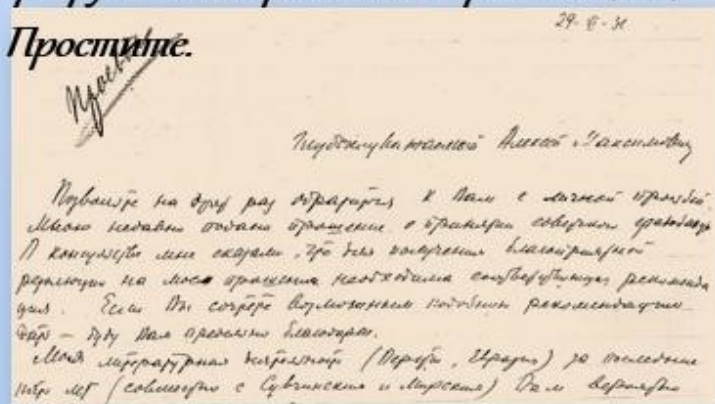 Простите.
29-VI-31
Глубокоуважаемый Алексей Максимович
Позвольте на этот раз обратиться к Вам с личной просьбой.
Мною недавно подано прошение о принятии советского гражданства
В консульстве мне сказали, что для получения благоприятной
резолюции на мое прошение необходима соответствующая рекоменда
ция. Если Вы сочтете возможным подобную рекомендацию
дать – буду Вам предельно благодарен.
Моя литературная деятельность (Версты, Евразия) за последние
пять лет (совместно с Сувчинским и Мирским) Вам вероятно